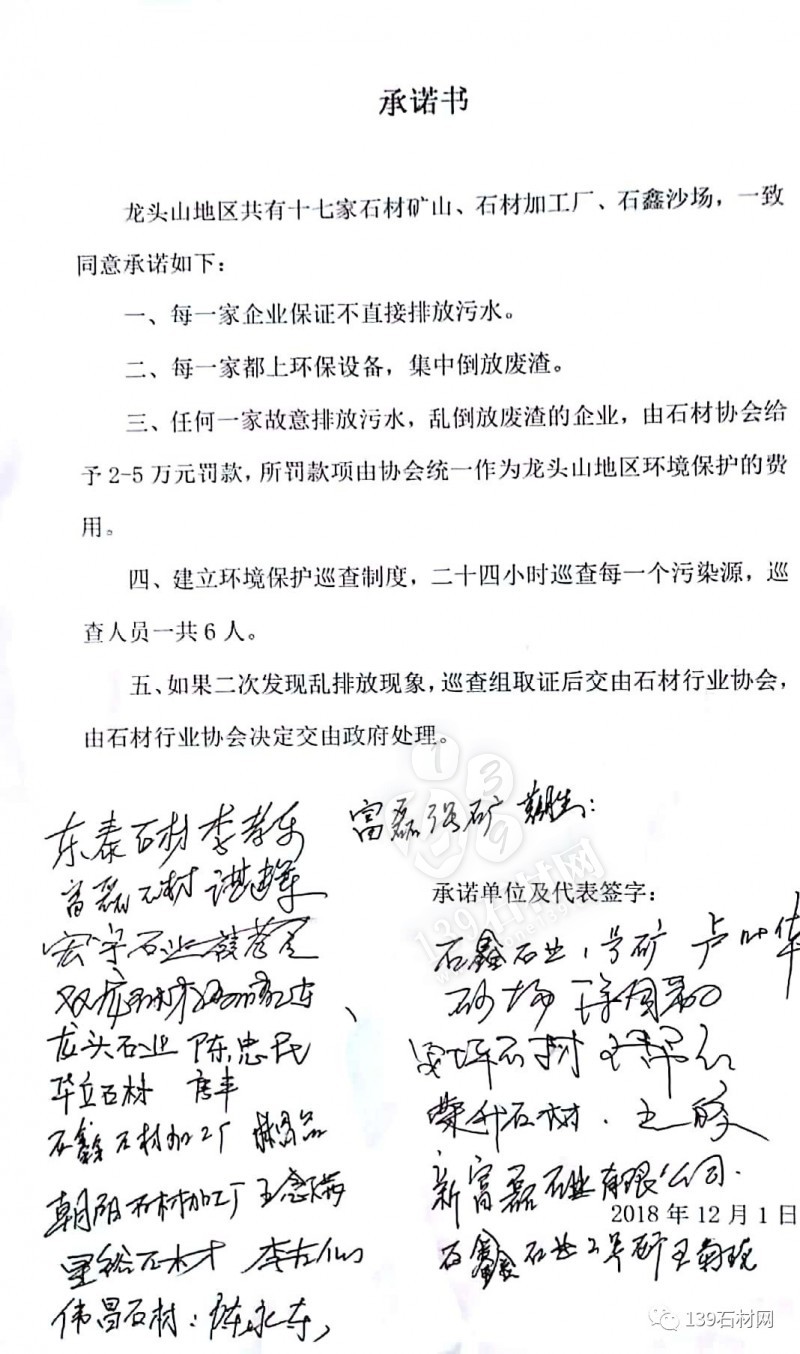 承诺书
龙头山地区共有十七家石材矿山、石材加工厂、石鑫沙场，一致
同意承诺如下：
一、每一家企业保证不直接排放污水。
二、每一家都上环保设备，集中倒放废渣。
三、任何一家故意排放污水，乱倒放废渣的企业，由石材协会给
予2-5万元罚款，所罚款项由协会统一作为龙头山地区环境保护的费
用。
四、建立环境保护巡查制度，二十四小时巡查每一个污染源，巡
查人员一共6人。
五、如果二次发现乱排放现象，巡查组取证后交由石材行业协会，
由石材行业协会决定交由政府处理。
富磊强矿
东泰石材 李孝乐
富磊石材
宏宇石业
龙头石业 陈忠民
华立石材 唐丰
石鑫石材加工厂
朝阳石材加工厂 王念满
伟昌石材：陈永东
承诺单位及代表签字：
石鑫石业1号矿 卢叶华
砂场
石材
荣升石材
新富磊石业有限公司
2018年12月1日
石鑫石业2号矿
139石材网
139石材网